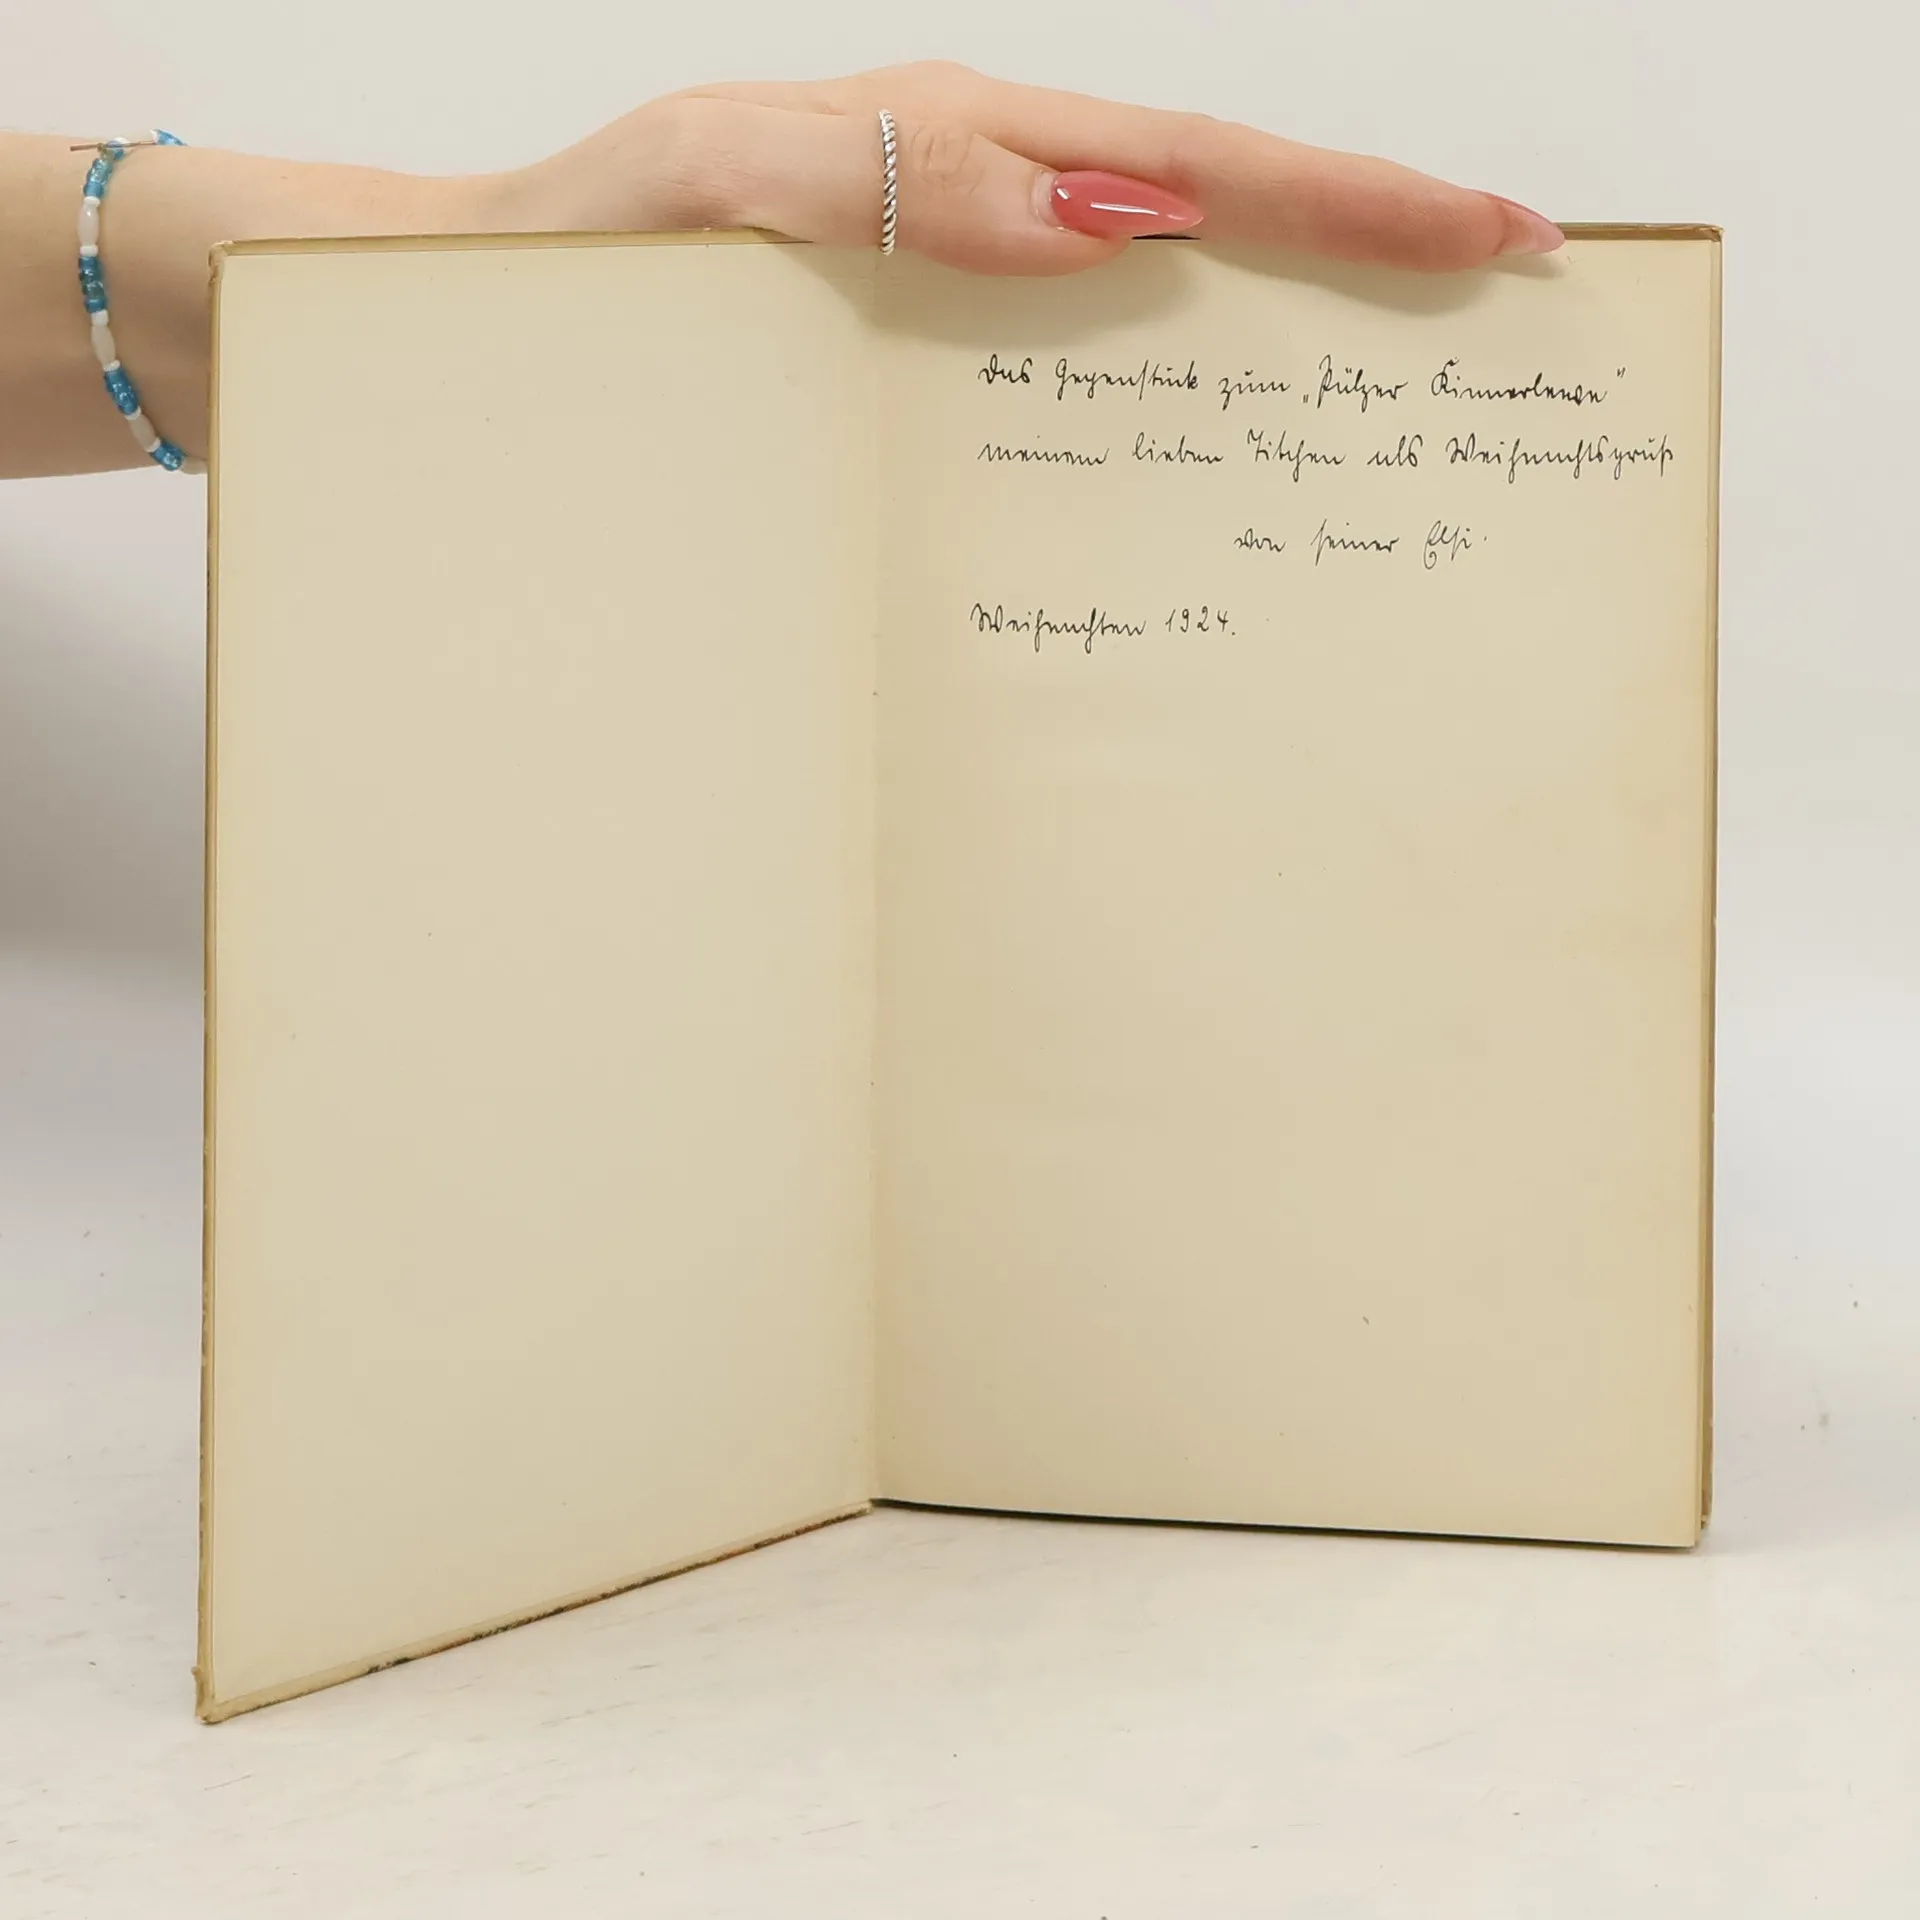 Das Gegenstück zum „Pälzer Kinnerlewe"
meinem lieben Titchen als Weihnachtsgruß
von seiner Elsi.
Weihnachten 1924.